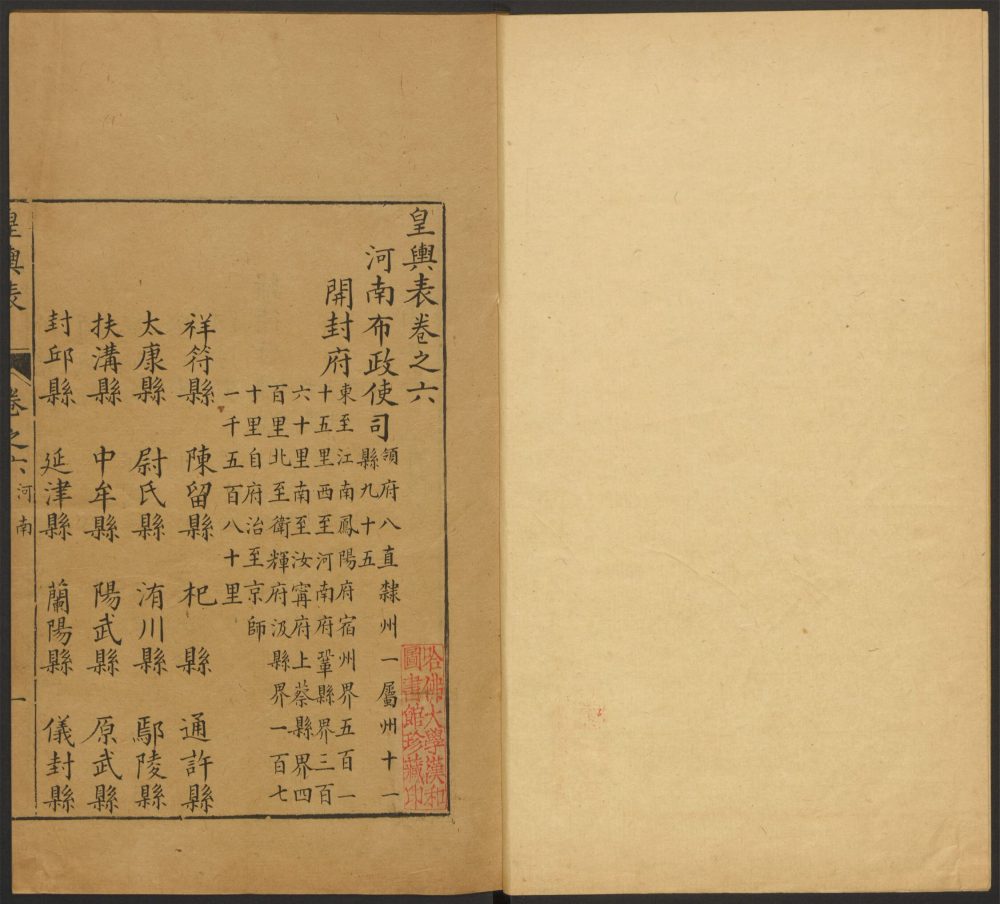 皇輿表卷之六
河南布政使司
領府八直隸州一屬州十一
縣九十五
開封府
東至江南鳳陽府宿州界五百一
十五里西至河南府鞏縣界三百
六十里南至汝寧府上蔡縣界四
百里北至衛輝府汲縣界一百七
十里自府治至京師
一千五百八十里
祥符縣 陳留縣 杞縣 通許縣
太康縣 尉氏縣 洧川縣 鄢陵縣
扶溝縣 中牟縣 陽武縣 原武縣
封邱縣 延津縣 蘭陽縣 儀封縣
皇輿表 卷之六 河南 一
哈佛大學漢和
圖書館珍藏印